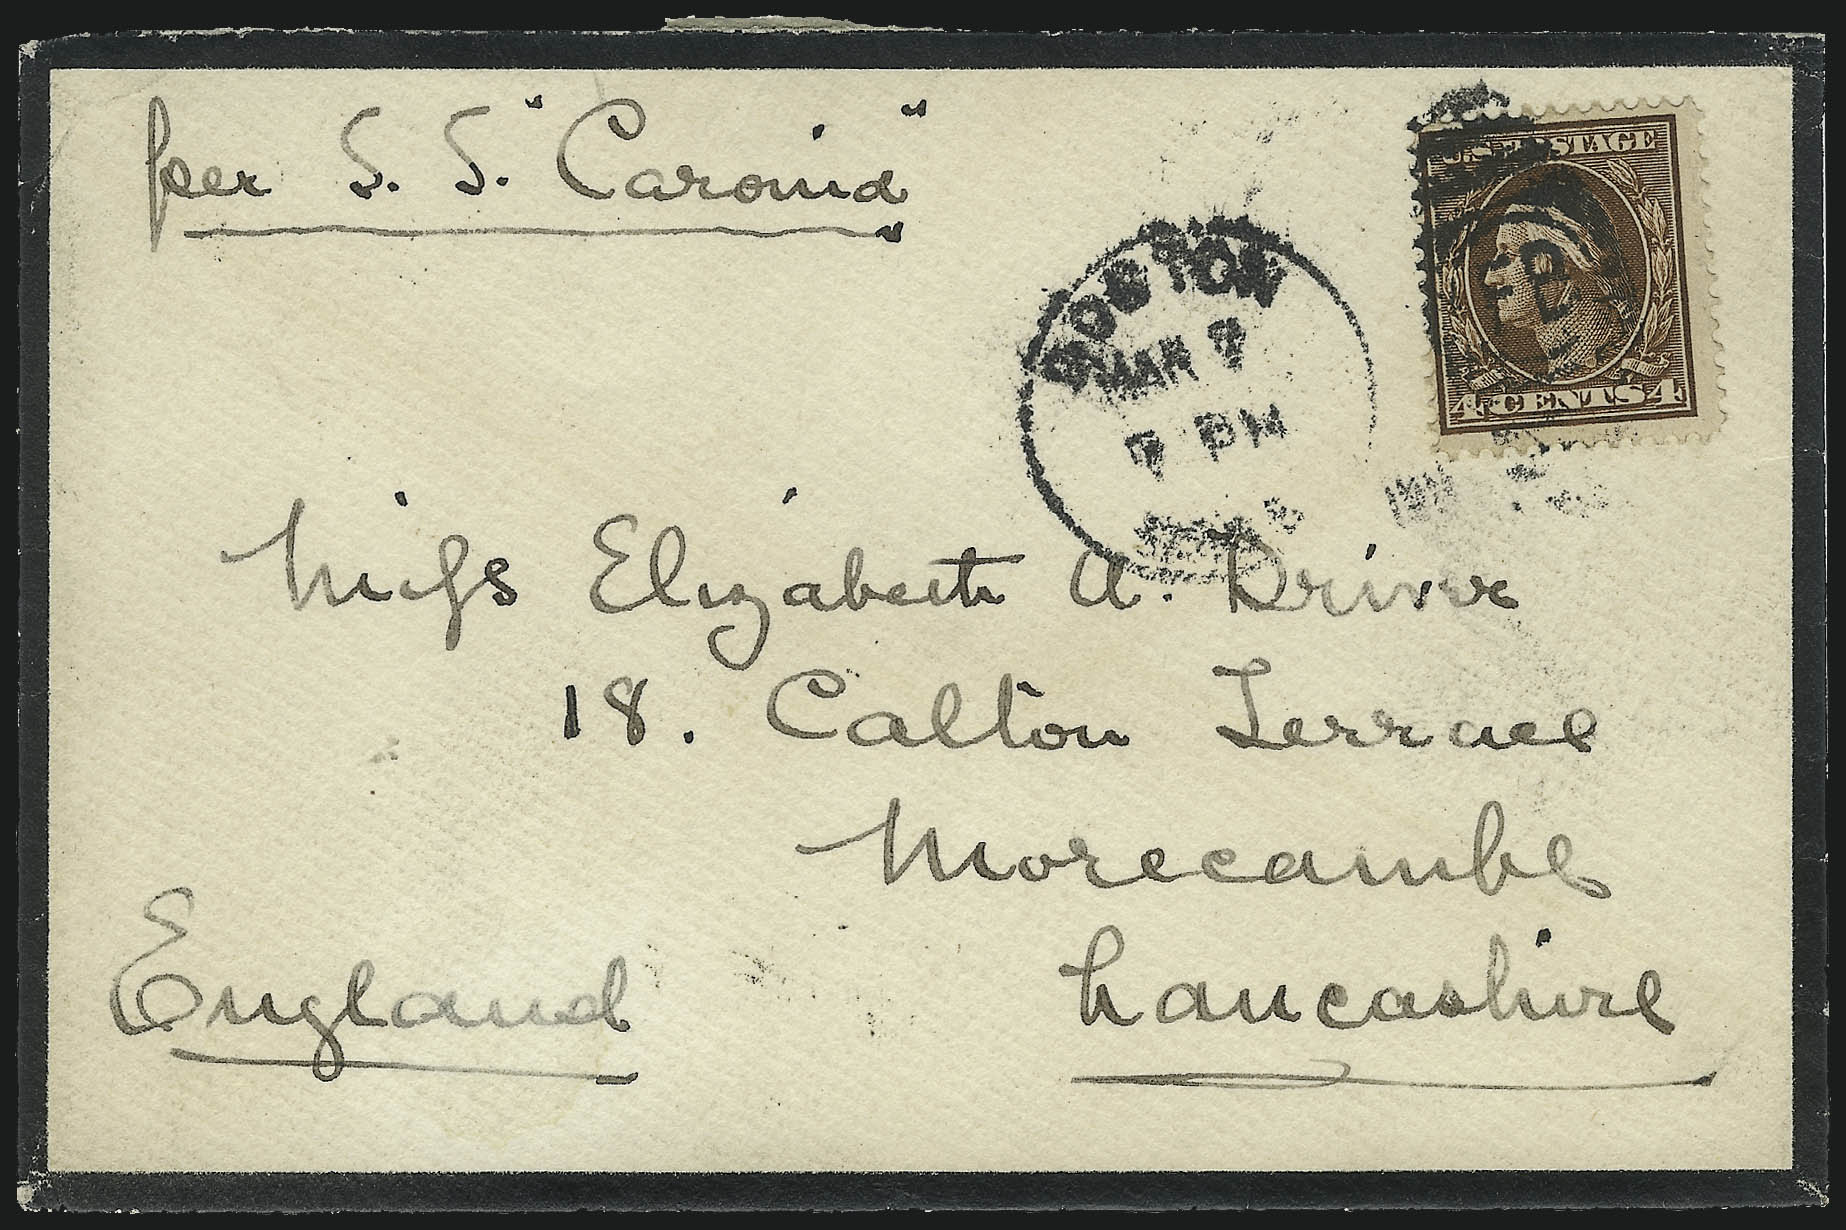 per S. S. "Caronia"
U.S. POSTAGE
4 CENTS 4
BOSTON
MAR 7
7 PM
Miss Elizabeth A. Driver
18. Calton Terrace
Morecambe
Lancashire
England